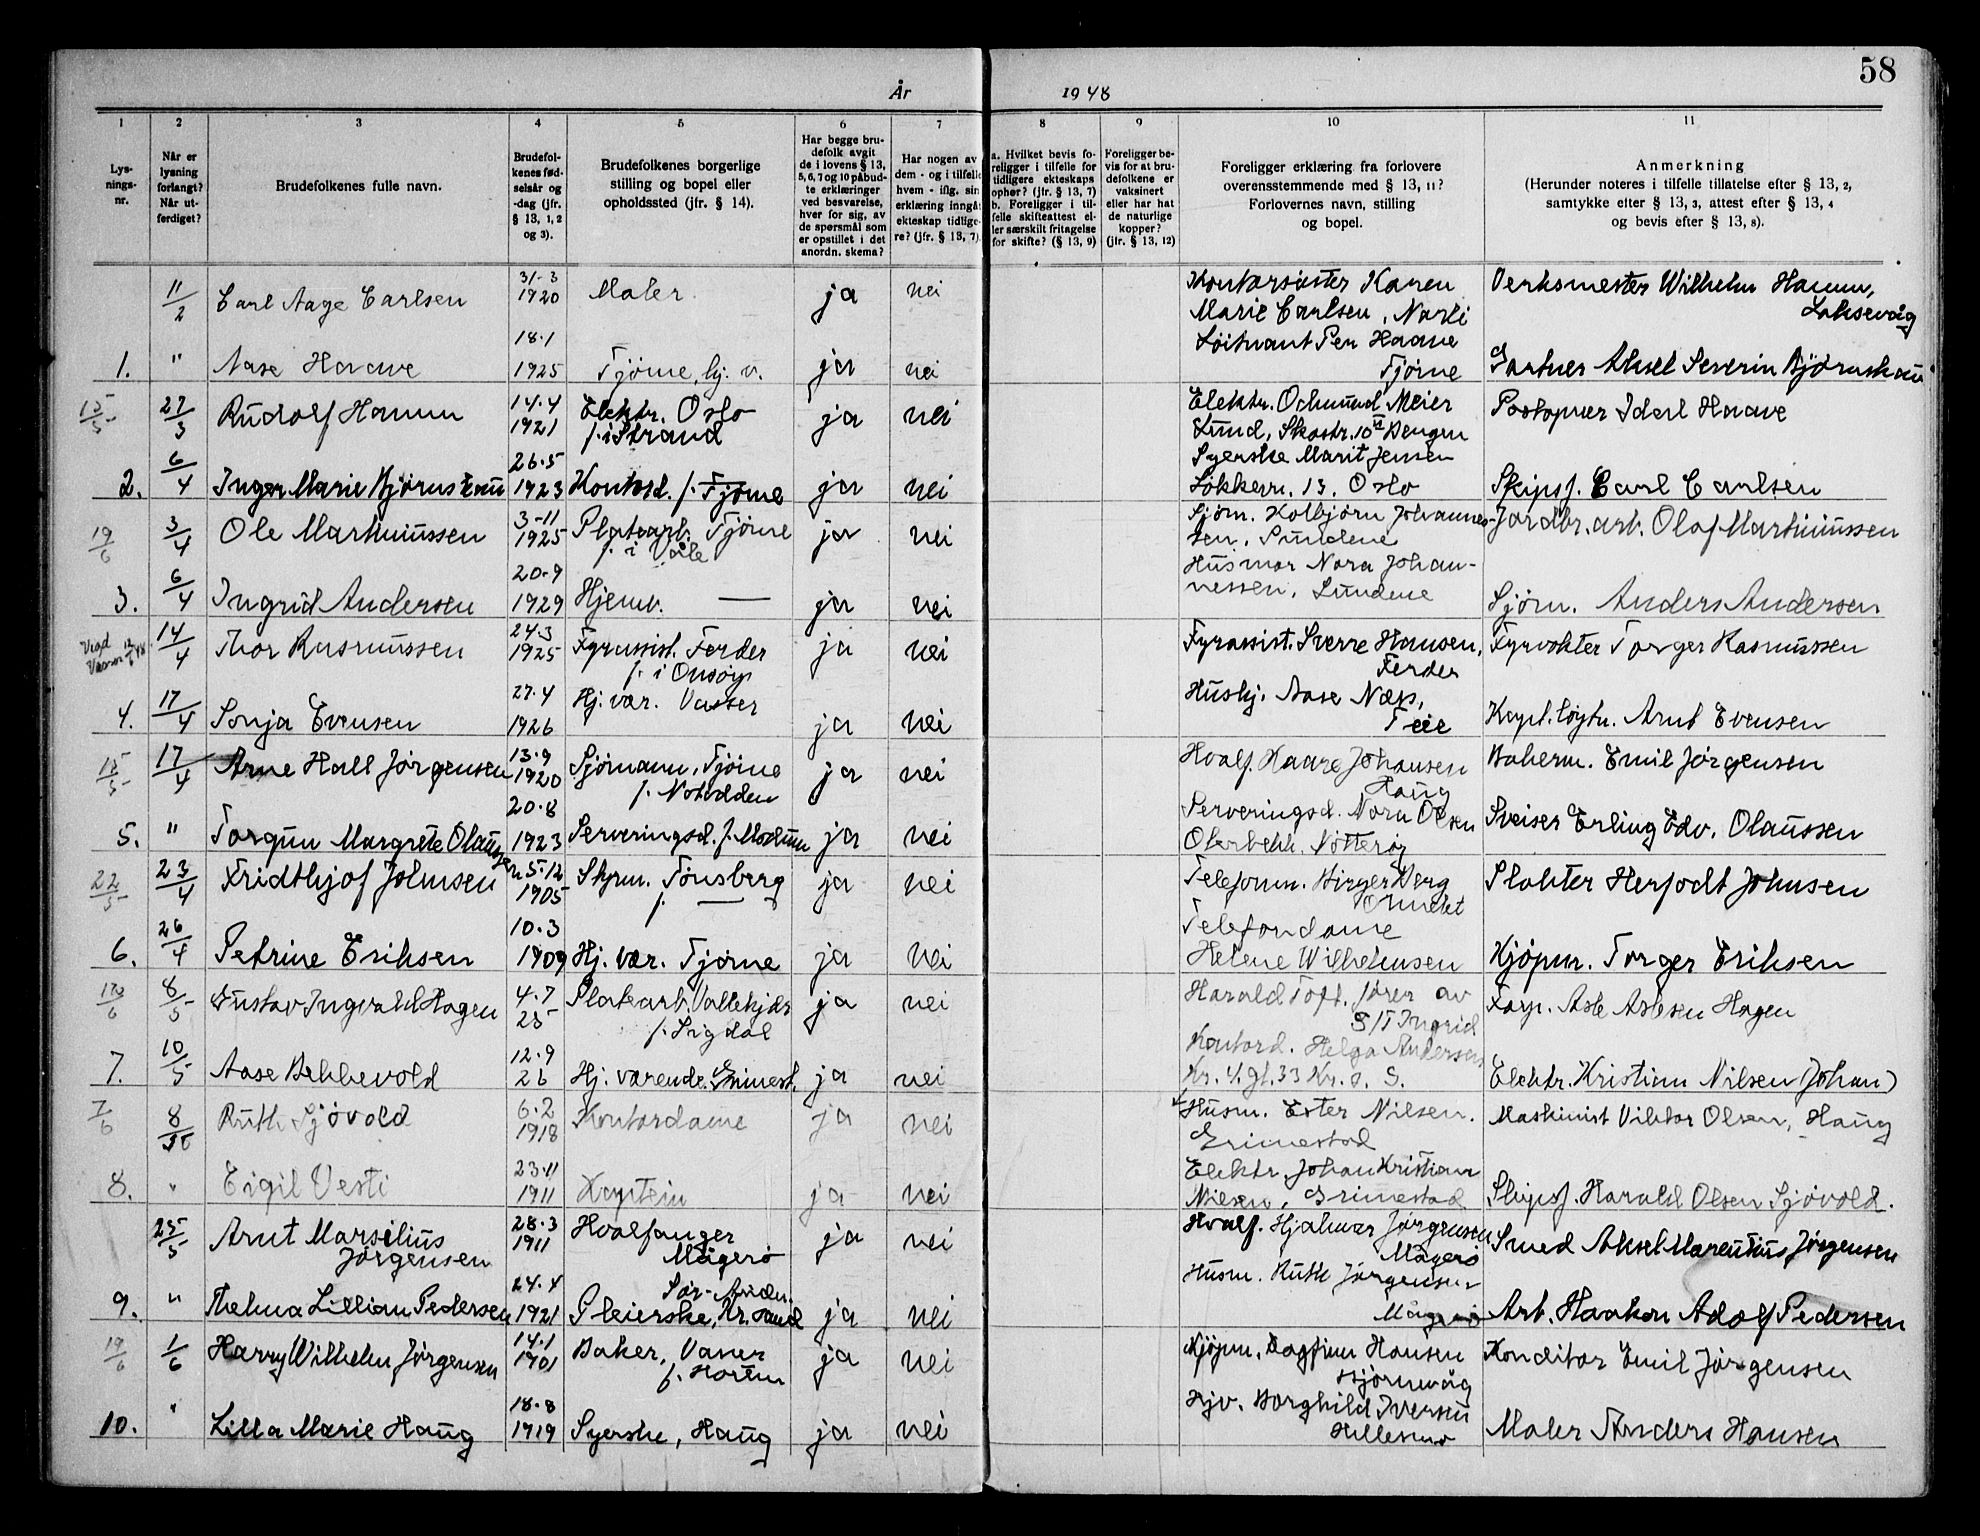 58
År 1948
1 2 3 4 5 6 7 8 9 10 11
Lys-
nings-
nr.
Når er
lysning
forlangt?
Når ut-
ferdiget?
Brudefolkenes fulle navn.
Brudefol-
kenes fød-
selsår og
-dag (jfr.
§ 13, 1, 2
og 3).
Brudefolkenes borgerlige
stilling og bopel eller
opholdssted (jfr. § 14).
Har begge bru-
defolk avgit
de i lovens § 13,
5, 6, 7 og 10 påbud-
te erklæringer
ved besvarelse,
hver for sig, av
de spørsmål som
er opstillet i det
anordn. skema?
Har nogen av
dem - og i tilfelle
hvem - iflg. sin
erklæring inngåt
ekteskap tidlige-
re? (jfr. § 13, 7).
a. Hvilket bevis fo-
religger i tilfelle for
tidligere ekteskaps
ophør? (jfr. § 13, 7)
b. Foreligger i til-
felle skifteattest el-
ler særskilt fritagelse
for skifte? (§ 13, 9)
Foreligger be-
vis for at bru-
defolkene er
vaksinert
eller har hat
de naturlige
kopper?
(jfr. § 13, 12)
Foreligger erklæring fra forlovere
overensstemmende med § 13, 11?
Forlovernes navn, stilling
og bopel.
Anmerkning
(Herunder noteres i tilfelle tillatelse efter § 13, 2,
samtykke efter § 13, 3, attest efter § 13, 4
og bevis efter § 13, 8).
11/2 Carl Aage Carlsen 31-3 1920 Maler ja nei
Kontorsøster Karen
Marie Carlsen,
Verksmester Wilhelm Hamm,
Laksevåg
1. " Aase Haave 18.1 1925 Tjøme, hj. v. ja nei
Løitnant Per Haave
Tjöme
Gartner Aksel Severin Bjørnskau
15/5 27/3 Rudolf Hamm 14.4 1921 Elektr. Oslo
f. i Strand ja nei
Elektr. Meier
Lund, Skostr. 10 Bergen
Postopner Idarl Haave
2. 6/4 Inger Marie Bjørnskau 26.5 1923 Kontord. f. Tjöme ja nei
Syerske Marit Jensen
Løkkevn. 13. Oslo
Skipsf. Carl Carlsen
19/6 3/4 Ole Marthinussen 3-11 1925 Platearb. Tjöme
f. i Våle ja nei
Sjöm. Kolbjörn Johannes-
sen, Sundene
Jordbr. arb. Olaf Marthinussen
3. 6/4 Ingrid Andersen 20.9 1929 Hjemv. — ja nei
Husmor Nora Johan-
nessen, Sundene
Sjöm. Anders Andersen
Vigd 12/6 48. 14/4 Thor Rasmussen 24.3 1925 Fyrassist. Ferder
f. i Onsöy ja nei
Fyrassist. Sverre Hansen,
Ferder
Fyrvokter Torger Rasmussen
4. 17/4 Sonja Evensen 27.4 1926 Hj. vær. Vasser ja nei
Hushj. Aase Næss,
Teie
Kapt. löytn. Arnt Evensen
15/5 17/4 Arne Hall Jörgensen 13.9 1920 Sjömann, Tjöme
f. Notodden ja nei
Hvalf. Kaare Johansen
Haug
Bakerm. Emil Jörgensen
5. " Torgun Margrete Olaussen 20.8 1923 Serveringsd. f. Modum ja nei
Serveringsd. Nora Olsen
Oterbekk. Nötteröy
Sveiser Erling Edv. Olaussen
22/5 23/4 Fridthjof Johnsen 5.12 1905 Skpm. Tönsberg
f. — ja nei
Telefonm. Birger Berg
Slakter Herfodt Johnsen
6. 26/4 Petrine Eriksen 10.3 1909 Hj. vær. Tjöme ja nei
Telefondame
Helene Wilhelmsen
Kjöpm. Torger Eriksen
8/5 Gustav Ingvald Hagen 4.7 25 Platearb. Vallekjær
f. Sigdal ja nei
Harald Toft, förer av
S/T Ingrid
Forp. Asle Aslesen Hagen
7. 10/5 Aase Bekkevold 12.9 26 Hj. værende. Grimest. ja nei
Kontord. Helga Andersen
Kr. 4. gt. 33 Kr. s. S.
Elektr. Kristian Nilsen (Johan)
7/6 8/5 Ruth Sjövold 6.2 1918 Kontordame ja nei
Husm. Ester Nilsen.
Grimestad
Maskinist Viktor Olsen, Haug
8. " Eigil Vesti 23.11 1911 Kaptein ja nei
Elektr. Johan Kristian
Nilsen, Grimestad
Skipsf. Harald Olsen Sjövold.
25/5 Arnt Marsilius
Jörgensen 28.3 1911 Hvalfanger
Mågerö ja nei
Hvalf. Hjalmar Jörgensen
Mågerö
Smed Aksel Marentius Jörgensen
9. " Thelma Lillian Pedersen 24.4 1921 Sör-Audn.
Pleierske, Kr. sand ja nei
Husm. Ruth Jörgensen
Mågerö
Arb. Haakon Adolf Pedersen
19/6 1/6 Harry Wilhelm Jörgensen 14.1 1901 Baker, Vaner
f. Horten ja nei
Kjöpm. Dagfinn Hansen
Bjørnevåg
Konditor Emil Jörgensen
10. " Lilla Marie Haug 18.8 1919 Syerske, Haug ja nei
Hjv. Borghild Iversen
Maler Anders Hansen